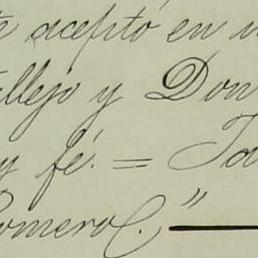 e aceptó en
llejo y Don
y fé. = Ja
omero."